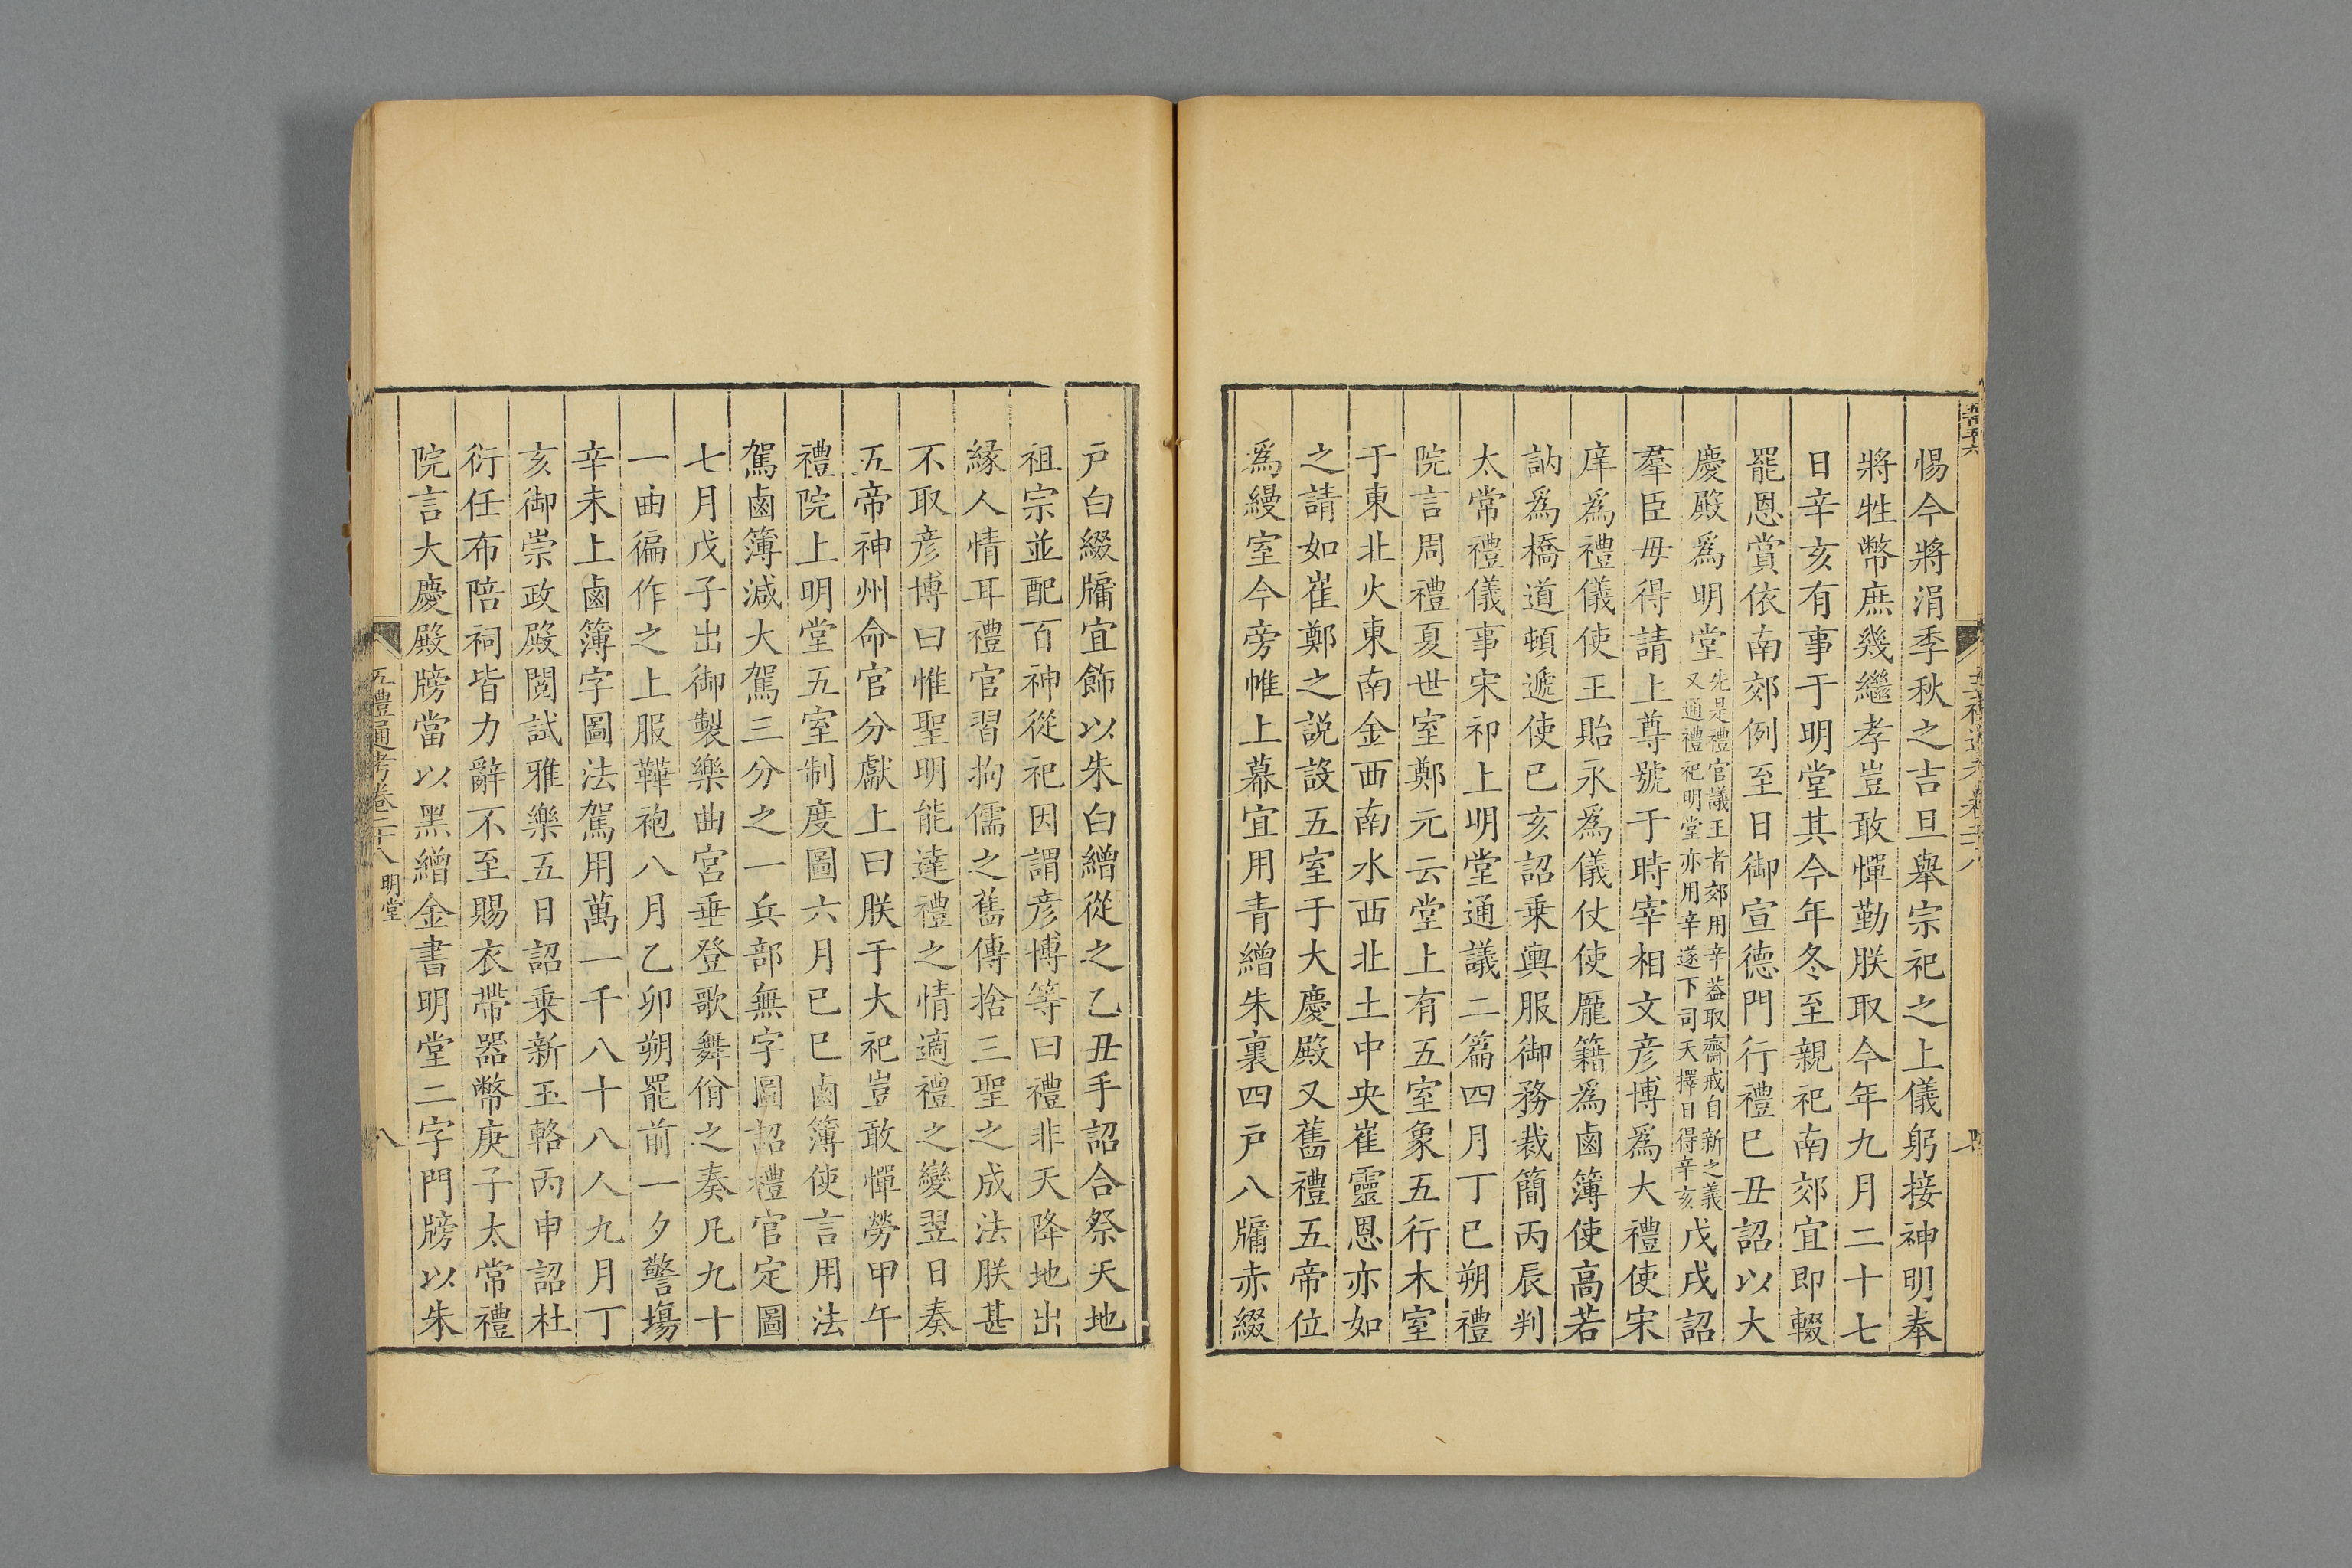 惕今將涓季秋之吉旦舉宗祀之上儀躬接神明奉
將牲幣庶幾繼孝豈敢憚勤朕取今年九月二十七
日辛亥有事于明堂其今年冬至親祀南郊宜即輟
罷恩賞依南郊例至日御宣德門行禮巳丑詔以大
慶殿爲明堂先是禮官議王者郊用辛葢取齋戒自新之義又通禮祀明堂亦用辛遂下司天擇日得辛亥戊戌詔
羣臣毋得請上尊號于時宰相文彥博爲大禮使宋
庠爲禮儀使王貽永爲儀仗使龐籍爲鹵簿使高若
訥爲橋道頓遞使已亥詔乗輿服御務裁簡丙辰判
太常禮儀事宋祁上明堂通議二篇四月丁巳朔禮
院言周禮夏世室鄭元云堂上有五室象五行木室
于東北火東南金西南水西北土中央崔靈恩亦如
之請如崔鄭之説設五室于大慶殿又舊禮五帝位
爲縵室今旁帷上幕宜用青繒朱裏四戸八牖赤綴
戸白綴牖宜飾以朱白繒從之乙丑手詔合祭天地
祖宗並配百神從祀因謂彥博等曰禮非天降地出
緣人情耳禮官習拘儒之舊傳捨三聖之成法朕甚
不取彥博曰惟聖明能達禮之情適禮之變翌日奏
五帝神州命官分獻上曰朕于大祀豈敢憚勞甲午
禮院上明堂五室制度圖六月已巳鹵簿使言用法
駕鹵簿減大駕三分之一兵部無字圖詔禮官定圖
七月戊子出御製樂曲宮垂登歌舞佾之奏凡九十
一曲徧作之上服鞾袍八月乙卯朔罷前一夕警塲
辛未上鹵簿字圖法駕用萬一千八十八人九月丁
亥御崇政殿閲試雅樂五日詔乗新玉輅丙申詔杜
衍任布陪祠皆力辭不至賜衣帶器幣庚子太常禮
院言大慶殿牓當以黑繒金書明堂二字門牓以朱
五禮通考卷二十八 明堂
八